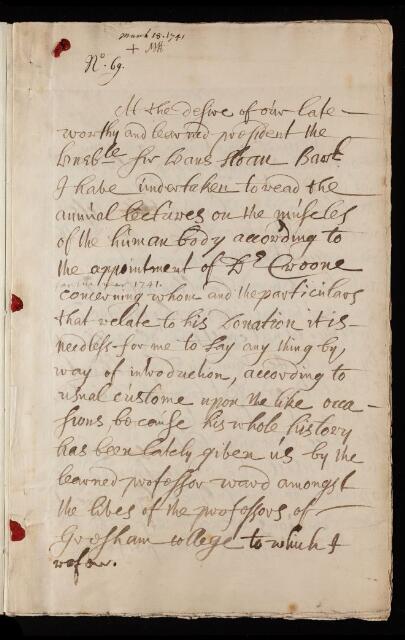 March 18. 1741
+
No. 69.
At the desire of our late
worthy and learned president the
Honbble Sir Hans Sloan Bart
I have undertaken to read the
annual lectures on the muscles
of the human body according to
the appointment of Dr Croone
1741.
concerning whom and the particulars
that relate to his Donation it is
needless for me to say any thing by,
way of introduction, according to
usual custome upon the like occa-
sions, because his whole history
has been lately given us by the
learned professor ward amongst
the lives of the professors of
Gresham college to which I
refer.